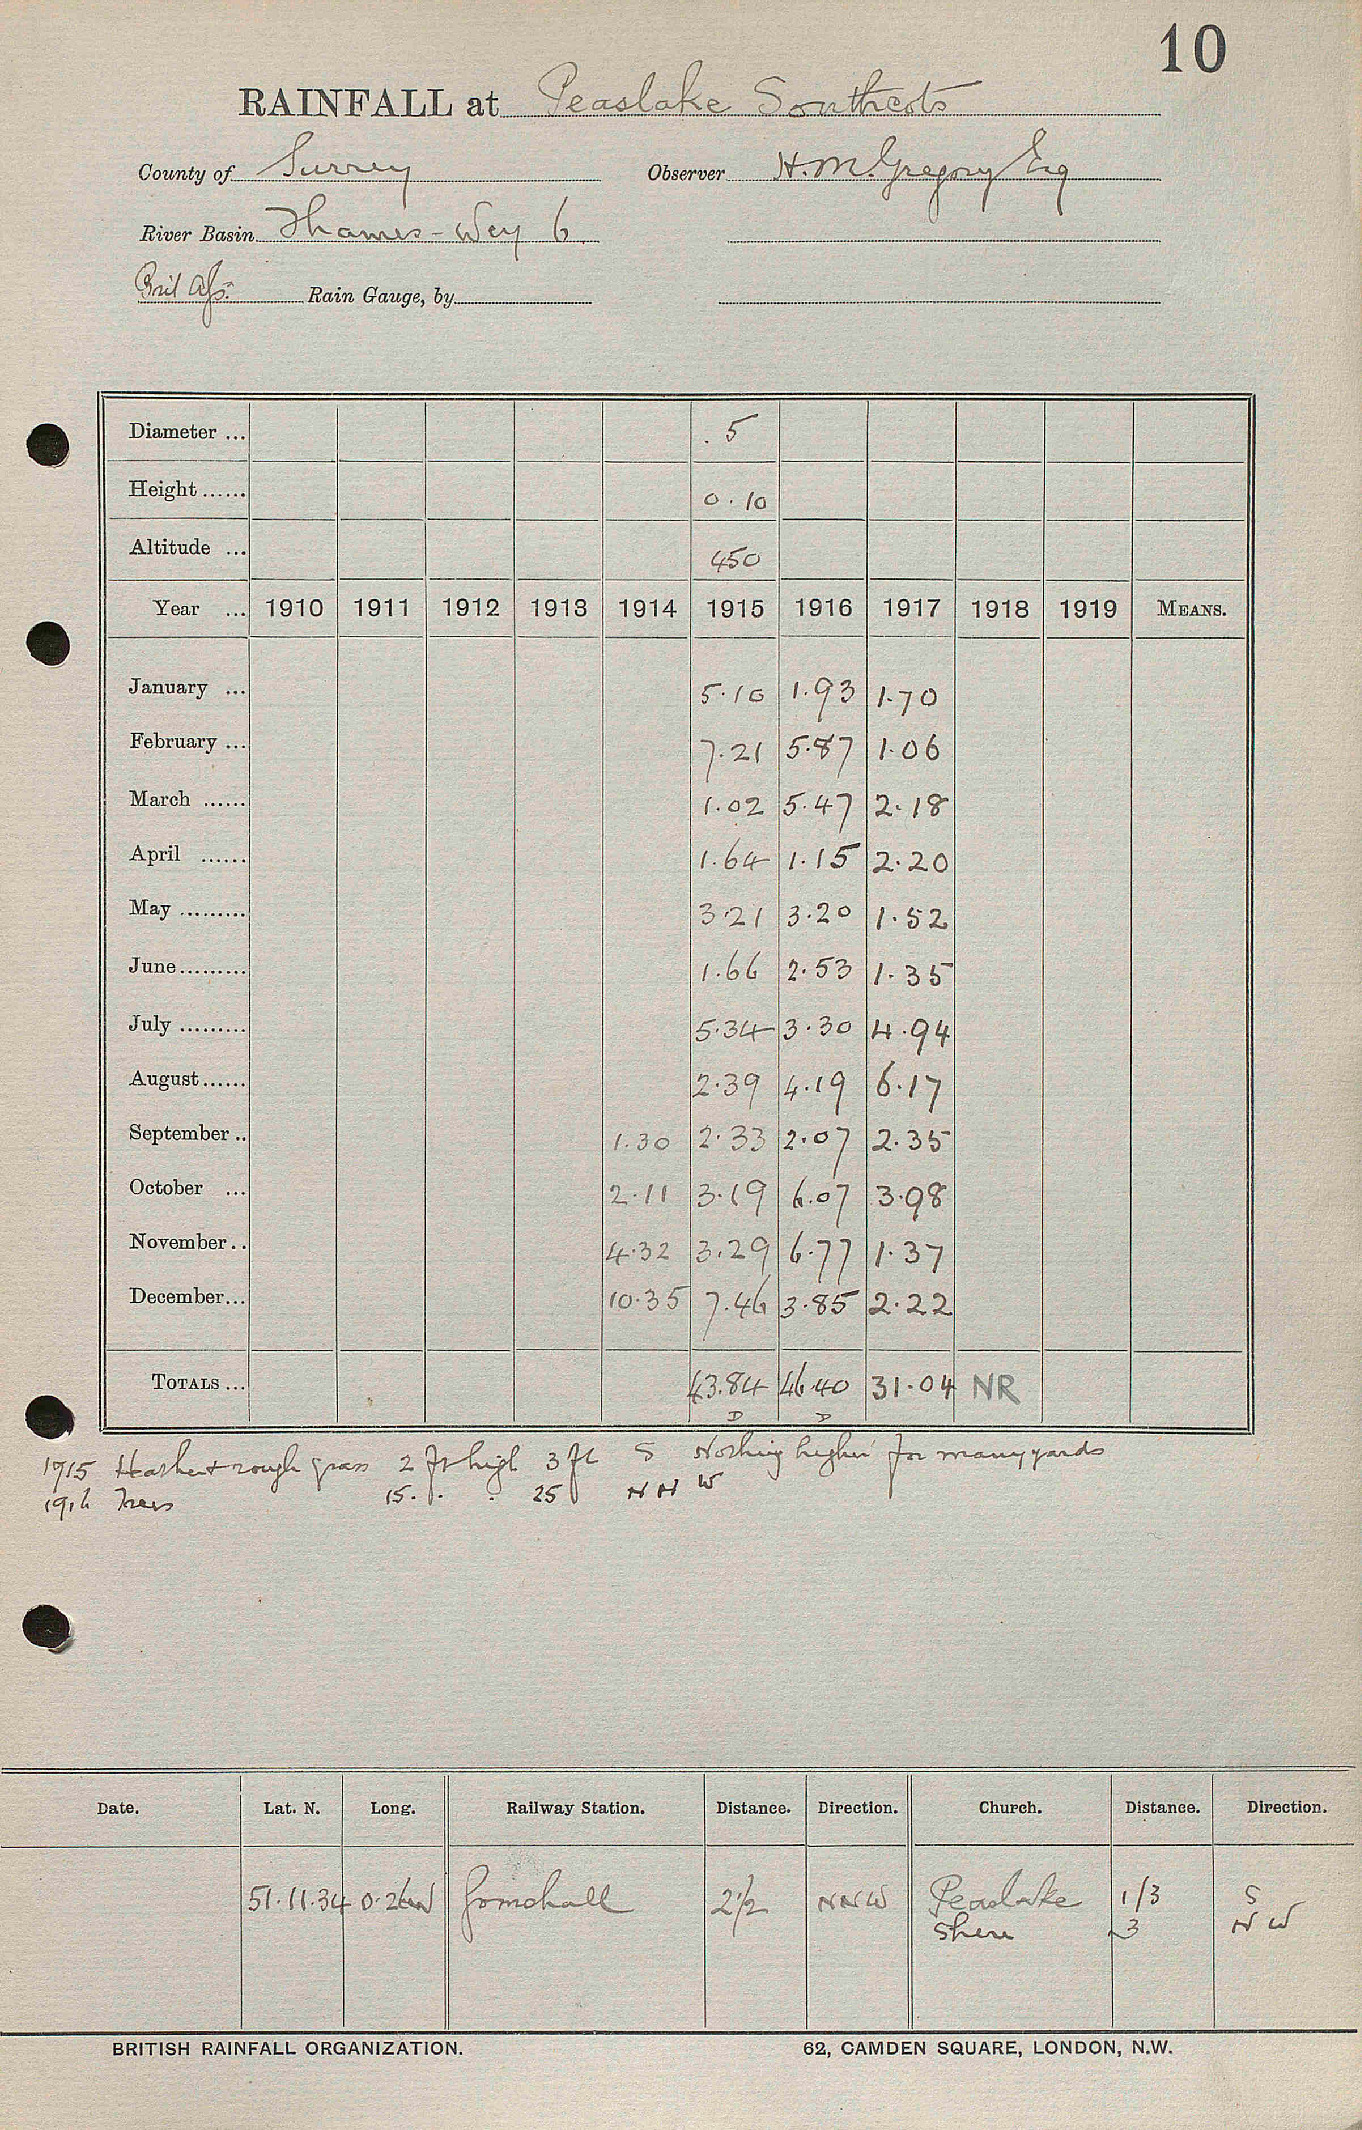 10
RAINFALL at Peaslake Southcots
County of Surrey Observer H. M. Gregory Esq
River Basin Thames - Wey 6
Rain Gauge, by
Diameter ... 5
Height ...... 0.10
Altitude ... 450
Year ... 1910 1911 1912 1913 1914 1915 1916 1917 1918 1919 MEANS.
January ... 5.10 1.93 1.70
February ... 7.21 5.87 1.06
March ...... 1.02 5.47 2.18
April ...... 1.64 1.15 2.20
May ......... 3.21 3.20 1.52
June ......... 1.66 2.53 1.35
July ......... 5.34 3.30 4.94
August ...... 2.39 4.19 6.17
September .. 1.30 2.33 2.07 2.35
October ... 2.11 3.19 6.07 3.98
November .. 4.32 3.29 6.77 1.37
December ... 10.35 7.46 3.85 2.22
TOTALS ... 43.84 46.40 31.04 NR
D D
1915 Heather + rough grass 2 ft high 3 ft S Nothing higher for many yards
1916 Trees 15 . . 25 NNW
Date. Lat. N. Long. Railway Station. Distance. Direction. Church. Distance. Direction.
51.11.34 0.26W Gomshall 2 1/2 NNW Peaslake 1/3 S
Shere 3 NW
BRITISH RAINFALL ORGANIZATION. 62, CAMDEN SQUARE, LONDON, N.W.